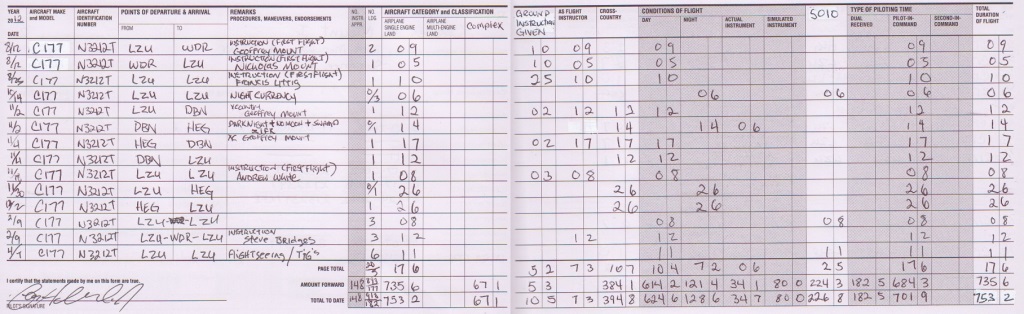 YEAR 2012 AIRCRAFT MAKE and MODEL AIRCRAFT IDENTIFICATION NUMBER POINTS OF DEPARTURE & ARRIVAL REMARKS PROCEDURES, MANEUVERS, ENDORSEMENTS NO. INSTR APPR NO. LDG AIRCRAFT CATEGORY and CLASSIFICATION GROUND INSTRUCTION GIVEN AS FLIGHT INSTRUCTOR CROSS-COUNTRY CONDITIONS OF FLIGHT SOLO TYPE OF PILOTING TIME TOTAL DURATION OF FLIGHT
DATE FROM TO AIRPLANE SINGLE-ENGINE LAND AIRPLANE MULTI-ENGINE LAND Complex DAY NIGHT ACTUAL INSTRUMENT SIMULATED INSTRUMENT DUAL RECEIVED PILOT-IN-COMMAND SECOND-IN-COMMAND
8/12 C177 N3212T LZU WDR INSTRUCTION (FIRST FLIGHT) GEOFFREY MOUNT 2 0 9 1 0 0 9 0 9 0 9 0 9
8/12 C177 N3212T WDR LZU INSTRUCTION (FIRST FLIGHT) NICHOLAS MOUNT 1 0 5 1 0 0 5 0 5 0 5 0 5
8/25 C177 N3212T LZU LZU INSTRUCTION (FIRST FLIGHT) FRANCIS 1 1 0 2 5 1 0 1 0 1 0 1 0
C177 N3212T LZU LZU NIGHT CURRENCY 0/3 0 6 0 6 0 6 0 6 0 6
11/2 C177 N3212T LZU DBN GEOFFREY MOUNT 1 1 2 0 2 1 2 1 2 1 2 1 2 1 2
C177 N3212T DBN HEG DARK NIGHT + NO MOON + 0/1 1 4 1 4 1 4 0 6 1 4 1 4
C177 N3212T HEG DBN GEOFFREY MOUNT 1 1 7 0 2 1 7 1 7 1 7 1 7 1 7
C177 N3212T DBN LZU 1 1 2 1 2 1 2 1 2 1 2
C177 N3212T LZU LZU INSTRUCTION (FIRST FLIGHT) ANDREW WHITE 1 0 8 0 3 0 8 0 8 0 8 0 8
C177 N3212T LZU HEG 0/1 2 6 2 6 2 6 2 6 2 6
C177 N3212T HEG LZU 1 2 6 2 6 2 6 2 6 2 6
2/9 C177 N3212T LZU - LZU 3 0 8 0 8 0 8 0 8 0 8
2/9 C177 N3212T LZU-WDR-LZU INSTRUCTION Steve Bridges 3 1 2 1 2 1 2 1 2 1 2
C177 N3212T LZU LZU FLIGHTSEEING / 6 1 1 1 1 1 1 1 1 1 1
PAGE TOTAL 17 6 5 2 7 3 10 7 10 4 7 2 0 6 2 5 17 6 17 6
I certify that the statements made by me on this form are true. AMOUNT FORWARD 148 735 6 67 1 5 3 384 1 614 2 121 4 34 1 80 0 224 3 182 5 684 3 735 6
PILOT'S SIGNATURE TOTAL TO DATE 148 753 2 67 1 10 5 7 3 394 8 624 6 128 6 34 7 80 0 226 8 182 5 701 9 753 2